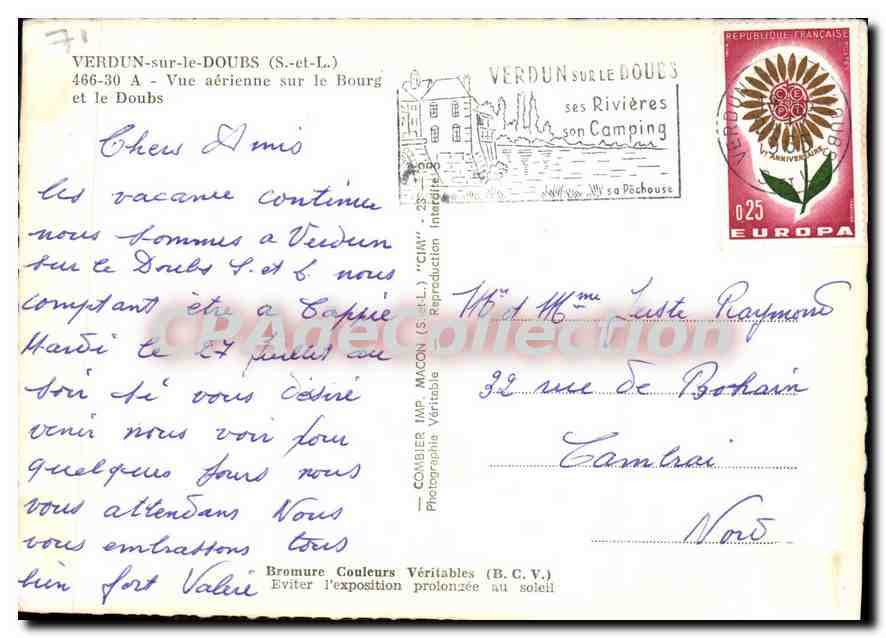 71
VERDUN-sur-le-DOUBS (S.-et-L.)
466-30 A - Vue aérienne sur le Bourg
et le Doubs
Chers Amis
les vacance continue
nous sommes a Verdun
sur le Doubs S. et L nous
comptant être a Cappie
Mardi le 27 juillet au
soir si vous désiré
venir nous voir pour
quelques jours nous
vous attendans Nous
vous embrassons tous
bien fort Valérie
Bromure Couleurs Véritables (B. C. V.)
Eviter l'exposition prolongée au soleil
— COMBIER IMP. MACON (S.-et-L.) "CIM" -
Photographie Véritable - Reproduction Interdite
VERDUN SUR LE DOUBS
ses Rivières
son Camping
sa Pôchouse
VERDUN DOUBS
REPUBLIQUE FRANÇAISE
CEPT
Ve ANNIVERSAIRE
0.25
EUROPA
Mr et Mme Juste Raymond
32 rue de Bohain
Cambrai
Nord
CPAdeCollection